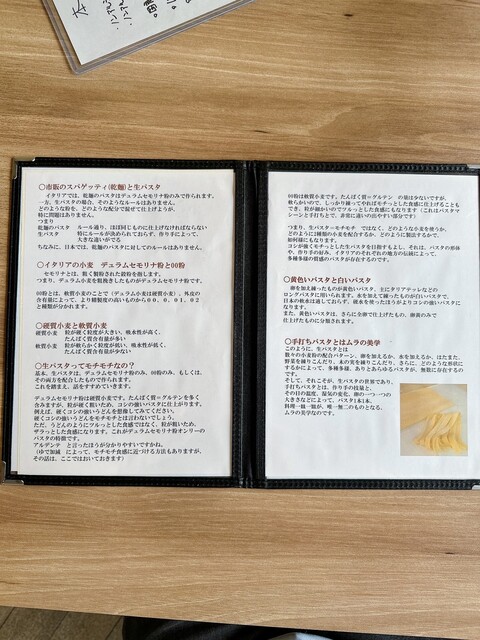 〇市販のスパゲッティ(乾麺)と生パスタ
イタリアでは、乾麺のパスタはデュラムセモリナ粉のみで作られます。
一方、生パスタの場合、そのようなルールはありません。
どのような粉を、どのような配分で混ぜて仕上げようが、
特に問題はありません。
つまり
乾麺のパスタ ルール通り、ほぼ同じものに仕上げなければならない
生パスタ 特にルールが決められておらず、作り手によって、
大きな違いがでる
ちなみに、日本では、乾麺のパスタに対してのルールはありません。
〇イタリアの小麦 デュラムセモリナ粉と00粉
セモリナとは、粗く製粉された穀粉を指します。
つまり、デュラム小麦を粗挽きしたものがデュラムセモリナ粉です。
00粉とは、軟質小麦のことで(デュラム小麦は硬質小麦)、外皮の
含有量によって、より精製度の高いものから00、0、1、02
と種類が分かれます。
〇硬質小麦と軟質小麦
硬質小麦 粒が硬く粒度が大きい、吸水性が高く、
たんぱく質含有量が多い
軟質小麦 粒が軟らかく粒度が低い、吸水性が低く、
たんぱく質含有量が少ない
〇生パスタってモチモチなの?
基本、生パスタは、デュラムセモリナ粉のみ、00粉のみ、もしくは、
その両方を配合したもので作られます。
これを踏まえ、話をすすめていきます。
デュラムセモリナ粉は硬質小麦です。たんぱく質=グルテンを多く
含みますが、粒が硬く粗いため、コシの強いパスタに仕上がります。
例えば、硬くコシの強いうどんを想像してみてください。
硬くコシの強いうどんをモチモチとは言わないでしょう。
ただ、うどんのようにツルッとした食感ではなく、粒が粗いため、
ザラっとした食感になります。これがデュラムセモリナ粉オンリーの
パスタの特徴です。
アルデンテ と言ったほうが分かりやすいですかね。
(ゆで加減 によって、モチモチ食感に近づける方法もありますが、
その話は、ここではおいておきます)
00粉は軟質小麦です。たんぱく質=グルテン の量は少ないですが、
軟らかいので、しっかり練ってやればモチっとした食感に仕上げることも
でき、粒が細かいのでツルっとした食感にもなります(これはパスタマ
シーンと手打ちとで、非常に違いの出やすい部分です)
つまり、生パスタ=モチモチ ではなく、どのような小麦を使うか、
どのように2種類の小麦を配合するか、どのように製法するかで、
如何様にもなります。
コシが強くモチっとした生パスタを目指すもよし、それは、パスタの形体
や、作り手の好み、イタリアのそれぞれの地方の伝統によって、
多種多様の質感のパスタが存在するのです。
〇黄色いパスタと白いパスタ
卵を加え練ったものが黄色いパスタ、主にタリアテッレなどの
ロングパスタに用いられます。水を加えて練ったものが白いパスタで、
日本の軟水は適しておらず、硬水を使ったほうがよりコシの強いパスタに
なります。
また、黄色いパスタは、さらに全卵で仕上げたもの、卵黄のみで
仕上げたものに分類されます。
〇手打ちパスタとはムラの美学
このように、生パスタとは
数々の小麦粉の配合パターン、卵を加えるか、水を加えるか、はたまた、
野菜を練りこんだり、木の実を練りこんだり、さらに、どのような形状に
するかによって、多種多様、ありとあらゆるパスタが、無数に存在するの
です。
そして、それこそが、生パスタの世界であり、
手打ちパスタとは、作り手の技量と、
その日の温度、湿気の変化、卵の一つ一つの
大きさなどによって、パスタ1本1本、
料理一皿一皿が、唯一無二のものとなる、
ムラの美学なのです。